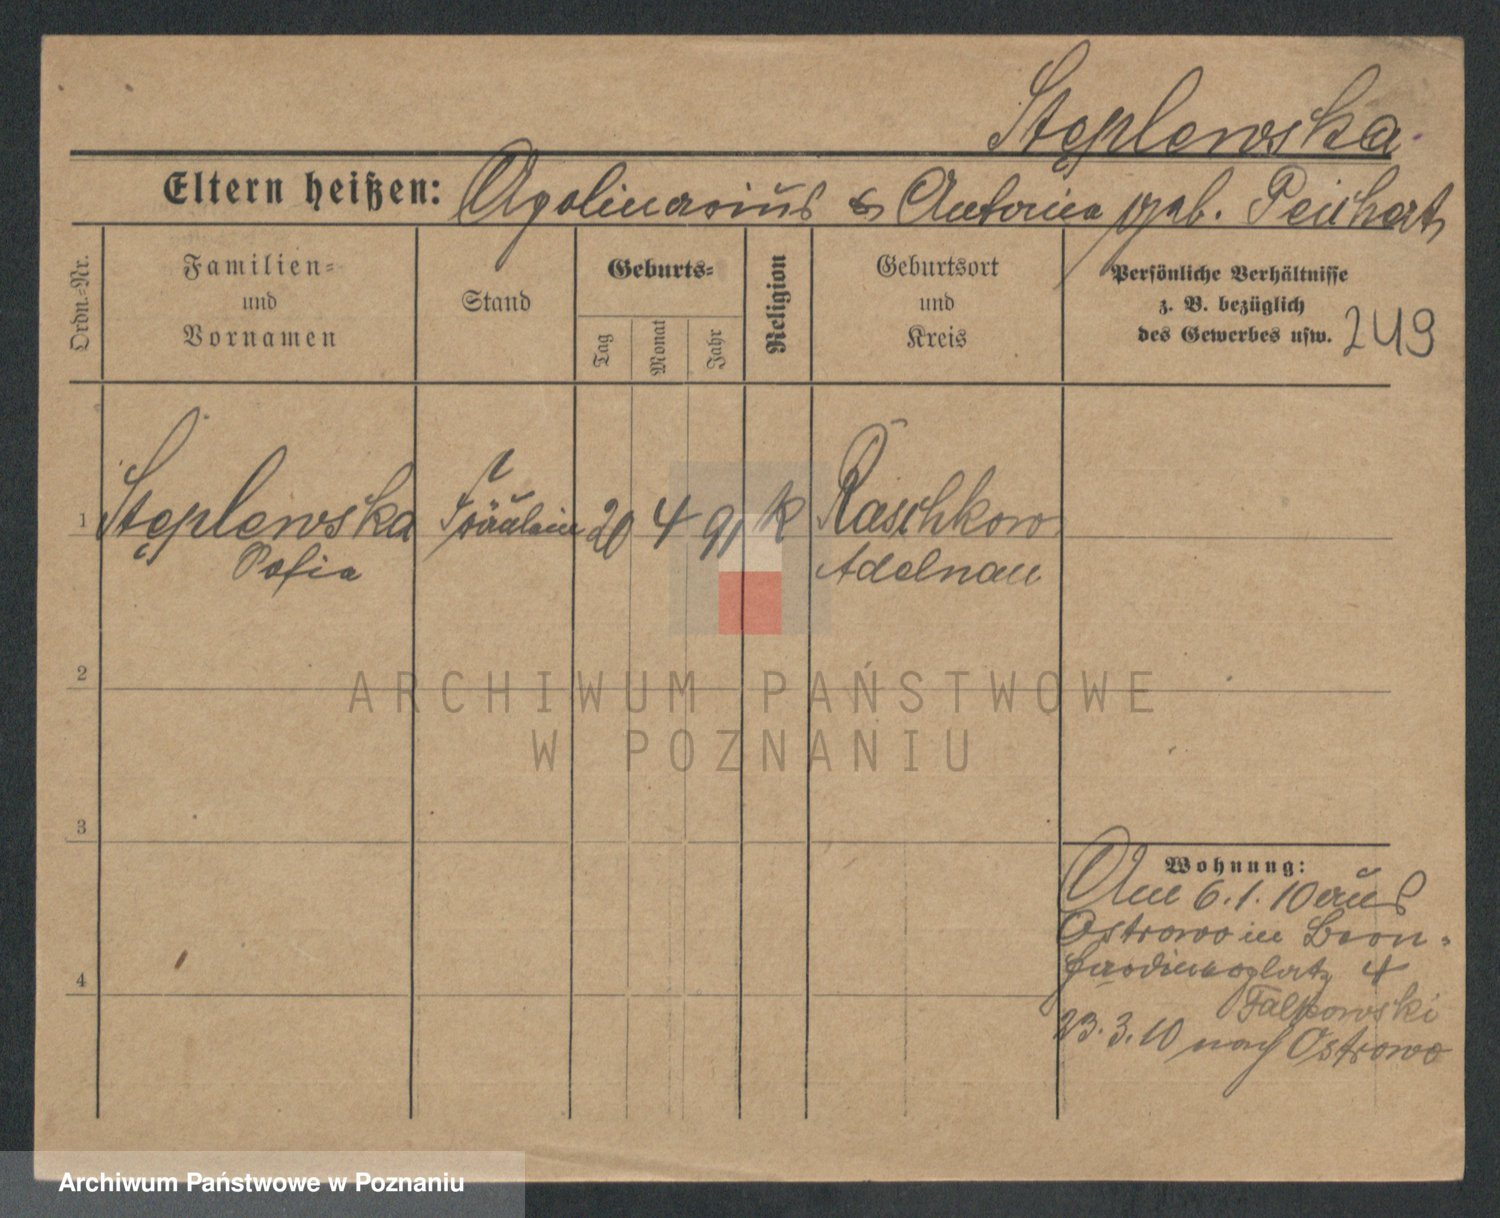 Stęplewska
Eltern heißen: Apolinarius & Antonina geb. Peichert
Ordn.-Nr.
Familien-
und
Vornamen
Stand
Geburts-
Tag
Monat
Jahr
Religion
Geburtsort
und
Kreis
Persönliche Verhältnisse
z. B. bezüglich
des Gewerbes usw.
249
1 Stęplewska Fräulein 20 4 91 k Raschkow
Sofia Adelnau
2
ARCHIWUM PAŃSTWOWE
W POZNANIU
3
Wohnung:
Am 6.1.10 aus
Ostrowo in
4
4
Falkowski
23.3.10 nach Ostrowo
Archiwum Państwowe w Poznaniu